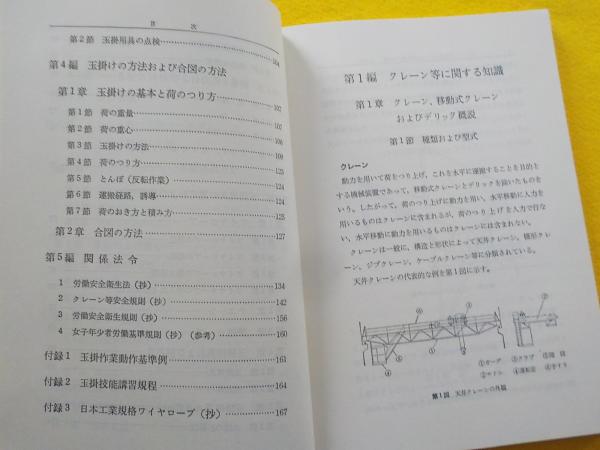 目次
第2節 玉掛用具の点検 104
第4編 玉掛けの方法および合図の方法
第1章 玉掛けの基本と荷のつり方 107
第1節 荷の重量 107
第2節 荷の重心 108
第3節 玉掛けの方法 109
第4節 荷のつり方 124
第5節 とんぼ（反転作業） 124
第6節 運搬経路，誘導 125
第7節 荷のおき方と積み方 125
第2章 合図の方法 127
第5編 関係法令
1 労働安全衛生法（抄） 134
2 クレーン等安全規則（抄） 142
3 労働安全衛生規則（抄） 156
4 女子年少者労働基準規則（抄）（参考） 160
付録1 玉掛作業動作基準例 161
付録2 玉掛技能講習規程 164
付録3 日本工業規格ワイヤロープ（抄） 167
第1編 クレーン等に関する知識
第1章 クレーン、移動式クレーン
およびデリック概説
第1節 種類および型式
クレーン
動力を用いて荷をつり上げ，これを水平に運搬することを目的と
する機械装置であって，移動式クレーンとデリックを除いたものを
いう。したがって，荷のつり上げに動力を用い，水平移動に人力を
用いるものはクレーンに含まれるが，荷のつり上げを人力で行な
い，水平移動に動力を用いるものはクレーンには含まれない。
クレーンは一般に，構造と形状によって天井クレーン，橋形クレ
ーン，ジブクレーン，ケーブルクレーン等に分類されている。
天井クレーンの代表的な例を第1図に示す。
①ガーダ ②クラブ
②サドル ④運転室
第1図 天井クレーンの外観